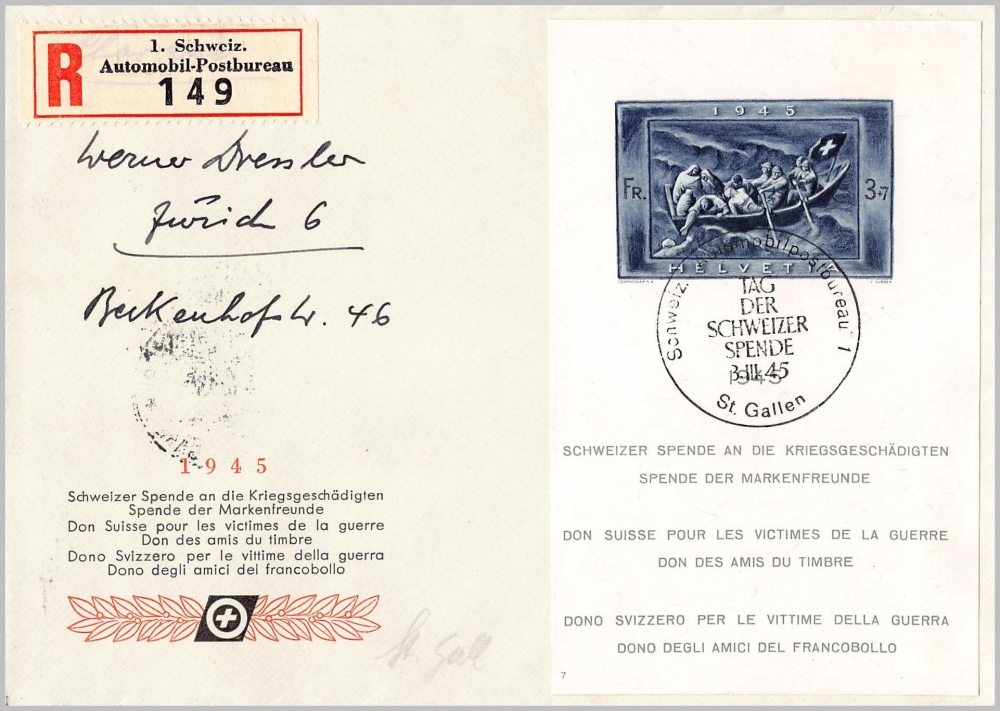 R
1. Schweiz.
Automobil-Postbureau
149
Werner Dressler
Zürich 6
Beckenhofstr. 46
1945
Schweizer Spende an die Kriegsgeschädigten
Spende der Markenfreunde
Don Suisse pour les victimes de la guerre
Don des amis du timbre
Dono Svizzero per le vittime della guerra
Dono degli amici del francobollo
St. Gall
1945
FR. 3+7
HELVETIA
Schweiz. Automobilpostbureau 1
TAG
DER
SCHWEIZER
SPENDE
3.III.45
1945
St. Gallen
SCHWEIZER SPENDE AN DIE KRIEGSGESCHÄDIGTEN
SPENDE DER MARKENFREUNDE
DON SUISSE POUR LES VICTIMES DE LA GUERRE
DON DES AMIS DU TIMBRE
DONO SVIZZERO PER LE VITTIME DELLA GUERRA
DONO DEGLI AMICI DEL FRANCOBOLLO
7